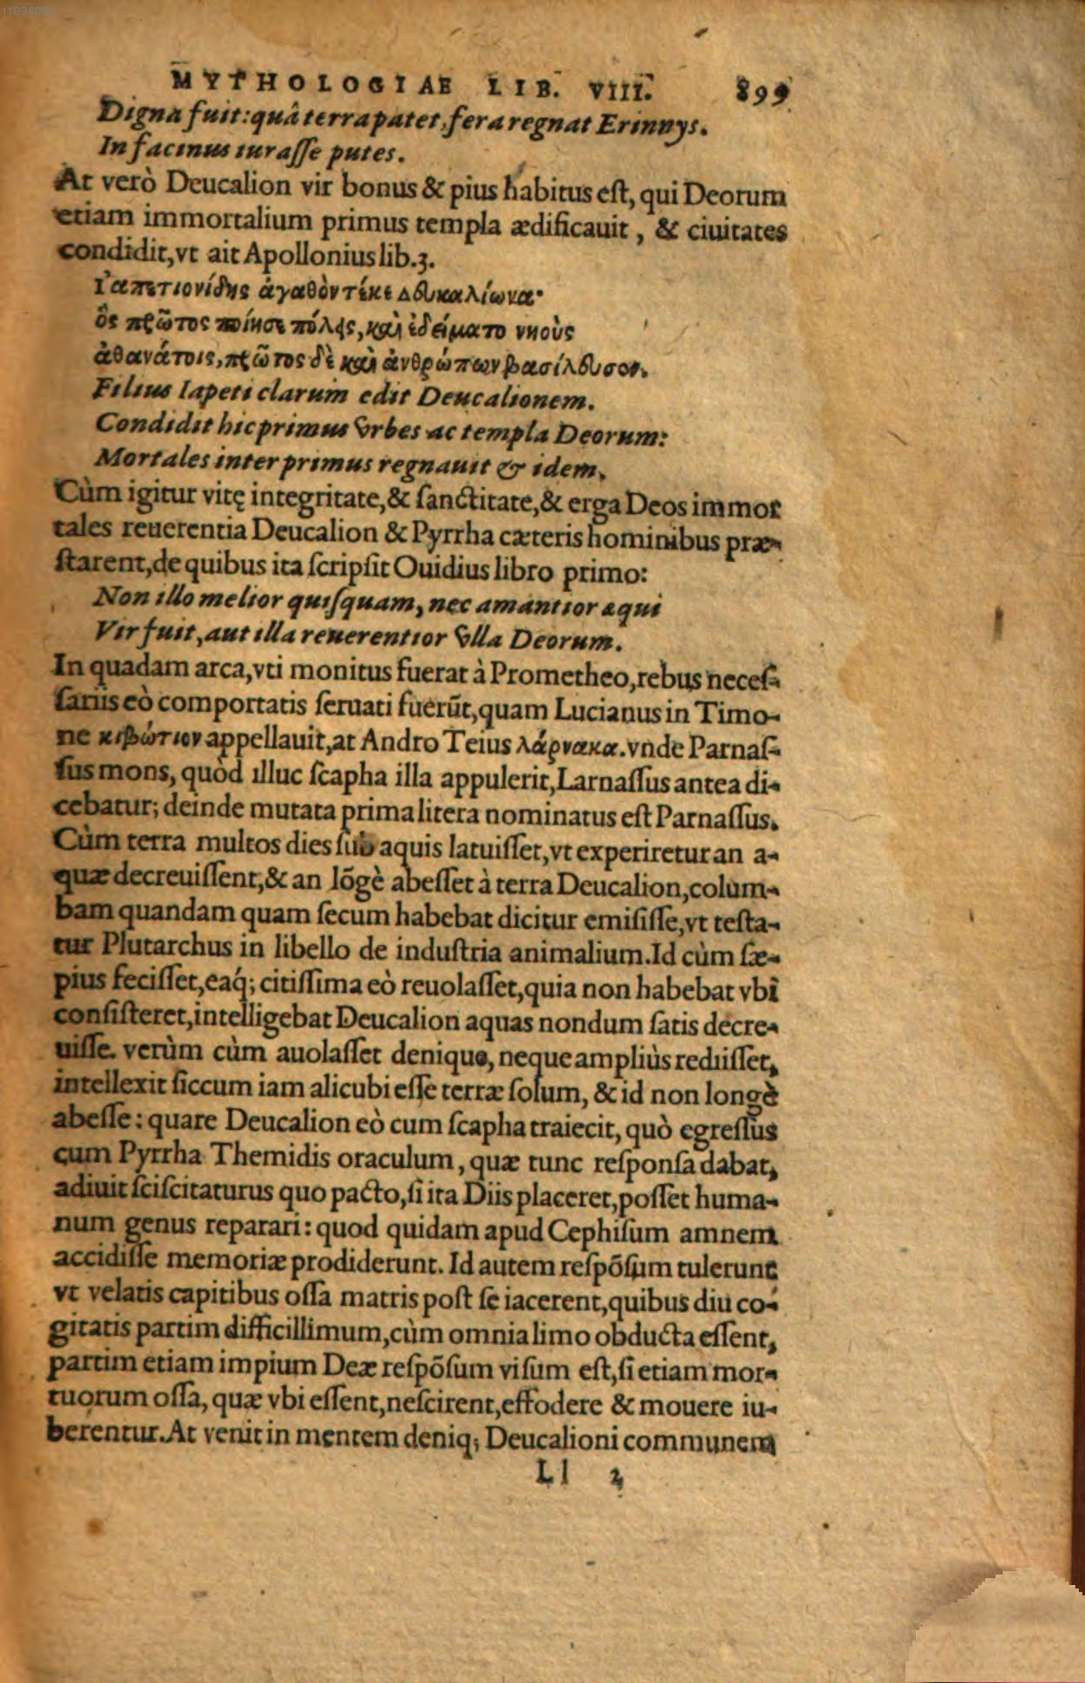 MYTHOLOGIAE LIB. VIII. 899
Digna fuit: quâ terra patet, fera regnat Erinnys.
In facinus iurasse putes.
At verò Deucalion vir bonus & pius habitus est, qui Deorum
etiam immortalium primus templa ædificauit, & ciuitates
condidit, vt ait Apollonius lib. 3.
Ἰαπετιονίδης ἀγαθὸν τέκε Δευκαλίωνα·
ὃς πρῶτος ποίησε πόλεις, καὶ ἐδείματο νηοὺς
ἀθανάτοις, πρῶτος δὲ καὶ ἀνθρώπων βασίλευσεν.
Filius Iapeti clarum edit Deucalionem.
Condidit hic primus vrbes ac templa Deorum:
Mortales inter primus regnauit & idem.
Cùm igitur vitę integritate, & sanctitate, & erga Deos immor
tales reuerentia Deucalion & Pyrrha cæteris hominibus præ-
starent, de quibus ita scripsit Ouidius libro primo:
Non illo melior quisquam, nec amantior æqui
Vir fuit, aut illa reuerentior vlla Deorum.
In quadam arca, vti monitus fuerat à Prometheo, rebus neces-
sariis eò comportatis seruati fuerũt, quam Lucianus in Timo-
ne κιβώτιον appellauit, at Andro Teius λάρνακα. vnde Parnas-
sus mons, quòd illuc scapha illa appulerit, Larnassus antea di-
cebatur; deinde mutata prima litera nominatus est Parnassus.
Cùm terra multos dies sub aquis latuisset, vt experiretur an a-
quæ decreuissent, & an lõgè abesset à terra Deucalion, colum-
bam quandam quam secum habebat dicitur emisisse, vt testa-
tur Plutarchus in libello de industria animalium. Id cùm sæ-
pius fecisset, eaq́; citissima eò reuolasset, quia non habebat vbi
consisteret, intelligebat Deucalion aquas nondum satis decre-
uisse. verùm cùm auolasset denique, neque ampliùs rediisset,
intellexit siccum iam alicubi esse terræ solum, & id non longè
abesse: quare Deucalion eò cum scapha traiecit, quò egressus
cum Pyrrha Themidis oraculum, quæ tunc responsa dabat,
adiuit sciscitaturus quo pacto, si ita Diis placeret, posset huma-
num genus reparari: quod quidam apud Cephisum amnem
accidisse memoriæ prodiderunt. Id autem respõsum tulerunt
vt velatis capitibus ossa matris post se iacerent, quibus diu co-
gitatis partim difficillimum, cùm omnia limo obducta essent,
partim etiam impium Deæ respõsum visum est, si etiam mor-
tuorum ossa, quæ vbi essent, nescirent, effodere & mouere iu-
berentur. At venit in mentem deniq; Deucalioni communem
Ll 2